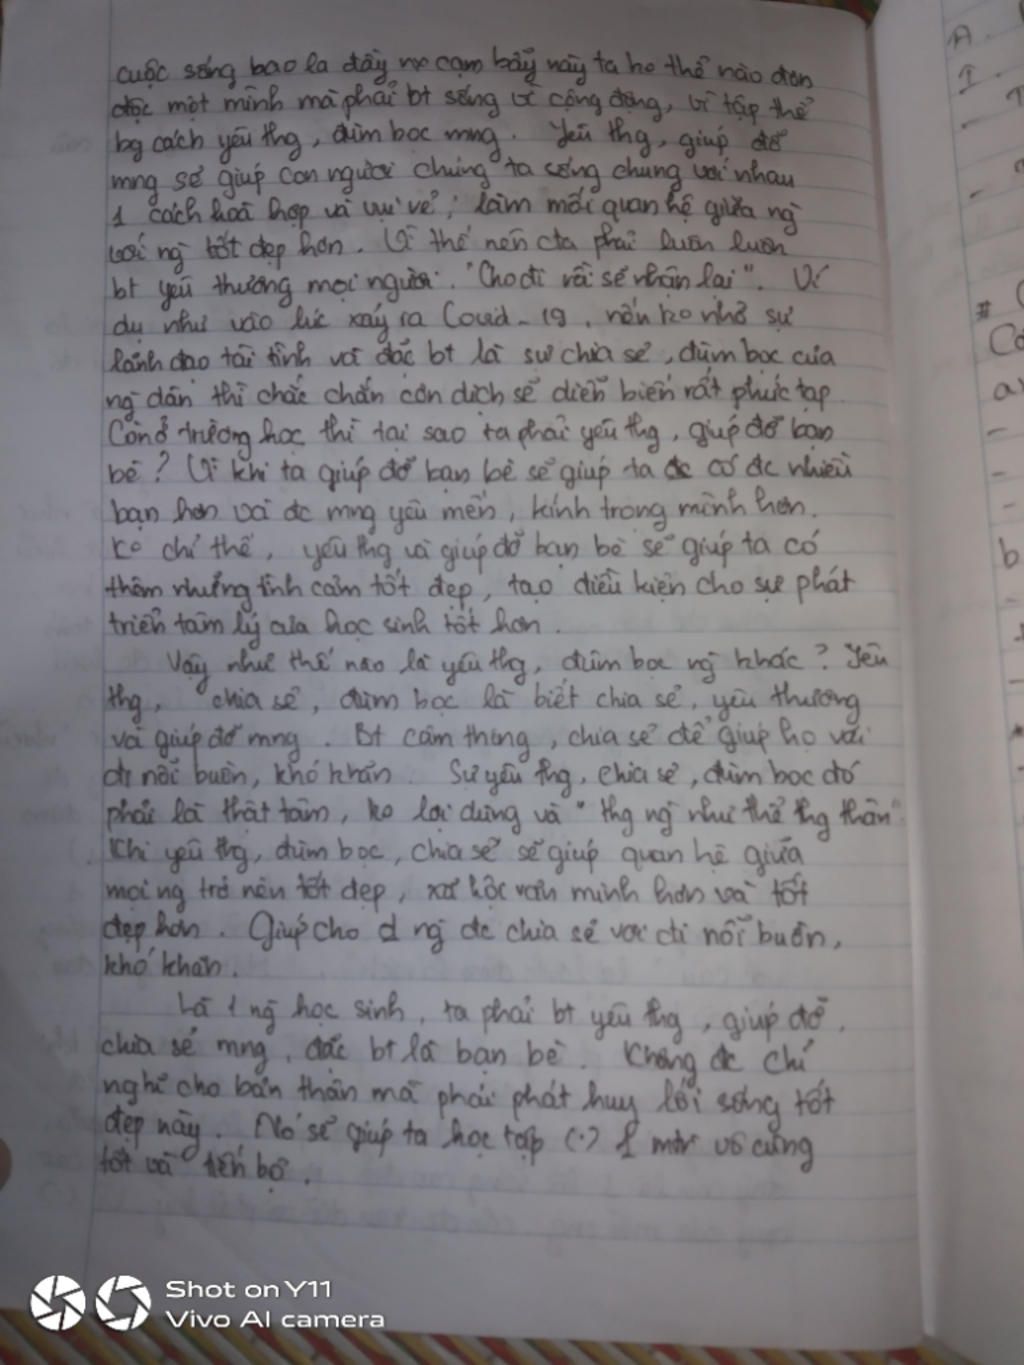 cuộc sống bao la đầy cạm bẫy này ta ko thể nào đơn
độc một mình mà phải bt sống vì cộng đồng, vì tập thể
bg cách yêu thg, đùm bọc mng. Yêu thg, giúp đỡ
mng sẽ giúp con người chúng ta sống chung với nhau
1 cách hoà hợp và vui vẻ, làm mối quan hệ giữa ng
với ng tốt đẹp hơn. Vì thế nên cta phải luôn luôn
bt yêu thương mọi người. "Cho đi rồi sẽ nhận lại". Ví
dụ như vào lúc xảy ra Covid-19, nếu ko nhờ sự
lãnh đạo tài tình và đặc bt là sự chia sẻ, đùm bọc của
ng dân thì chắc chắn cơn dịch sẽ diễn biến rất phức tạp
Còn ở trường học thì tại sao ta phải yêu thg, giúp đỡ bạn
bè? Vì khi ta giúp đỡ bạn bè sẽ giúp ta đc có đc nhiều
bạn hơn và đc mng yêu mến, kính trọng mình hơn.
ko chỉ thế, yêu thg và giúp đỡ bạn bè sẽ giúp ta có
thêm những tình cảm tốt đẹp, tạo điều kiện cho sự phát
triển tâm lý của học sinh tốt hơn.
Vậy như thế nào là yêu thg, đùm bọc ng khác? Yêu
thg, chia sẻ, đùm bọc là biết chia sẻ, yêu thương
và giúp đỡ mng. Bt cảm thông, chia sẻ để giúp họ vơi
đi nỗi buồn, khó khăn. Sự yêu thg, chia sẻ, đùm bọc đó
phải là thật tâm, ko lợi dụng và "thg ng như thể thg thân"
Khi yêu thg, đùm bọc, chia sẻ sẽ giúp quan hệ giữa
mọi ng trở nên tốt đẹp, xã hội văn minh hơn và tốt
đẹp hơn. Giúp cho ng đc chia sẻ vơi đi nỗi buồn,
khó khăn.
Là 1 ng học sinh, ta phải bt yêu thg, giúp đỡ,
chia sẻ mng, đặc bt là bạn bè. Không đc chỉ
nghĩ cho bản thân mà phải phát huy lối sống tốt
đẹp này. Nó sẽ giúp ta học tập (.) 1 mtr vô cùng
tốt và tiến bộ.
A.
I.
-
-
#
-
-
-
b
-
-
Shot on Y11
Vivo AI camera